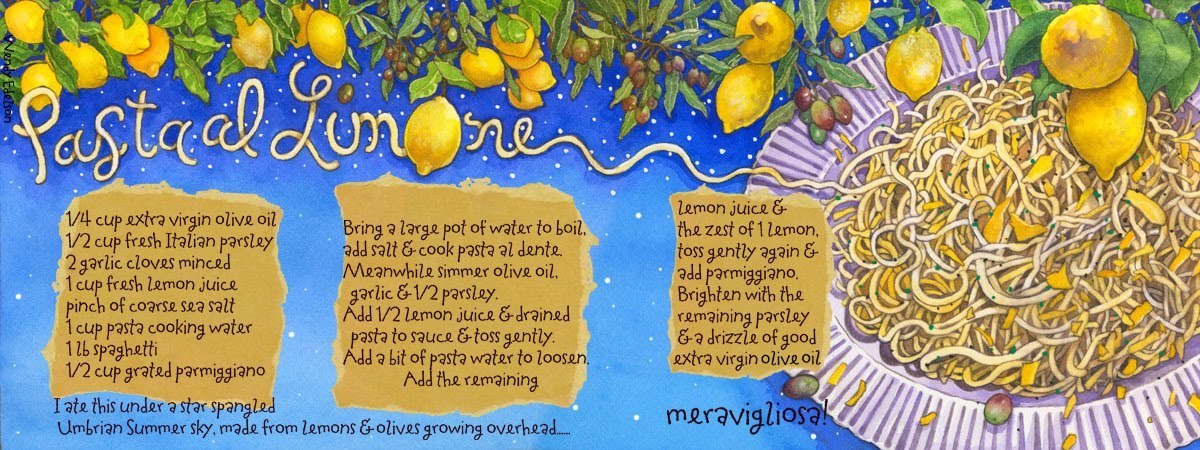 Pasta al Limone
1/4 cup extra virgin olive oil
1/2 cup fresh Italian parsley
2 garlic cloves minced
1 cup fresh lemon juice
pinch of coarse sea salt
1 cup pasta cooking water
1 lb spaghetti
1/2 cup grated parmiggiano
Bring a large pot of water to boil,
add salt & cook pasta al dente.
Meanwhile simmer olive oil,
garlic & 1/2 parsley.
Add 1/2 lemon juice & drained
pasta to sauce & toss gently.
Add a bit of pasta water to loosen.
Add the remaining
lemon juice &
the zest of 1 lemon,
toss gently again &
add parmiggiano.
Brighten with the
remaining parsley
& a drizzle of good
extra virgin olive oil
I ate this under a star spangled
Umbrian Summer sky, made from lemons & olives growing overhead......
meravigliosa!